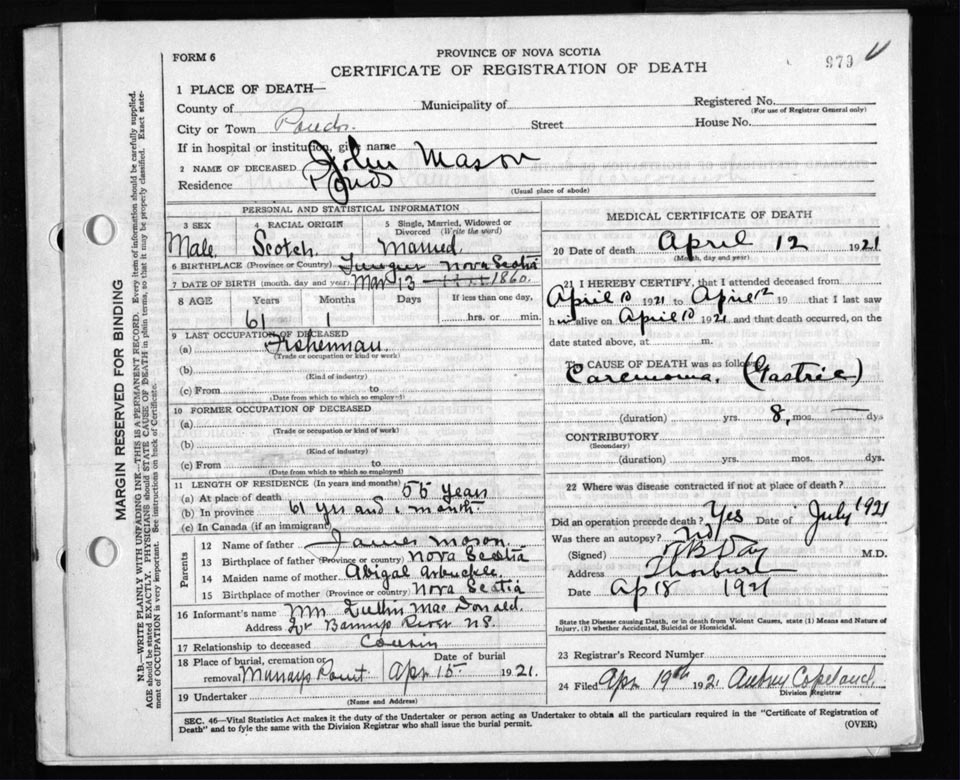 FORM 6
PROVINCE OF NOVA SCOTIA
CERTIFICATE OF REGISTRATION OF DEATH
979
1 PLACE OF DEATH—
County of Municipality of Registered No.
(For use of Registrar General only)
City or Town Ponds. Street House No.
If in hospital or institution, give name
2 NAME OF DECEASED John Mason
Residence Ponds
(Usual place of abode)
PERSONAL AND STATISTICAL INFORMATION
3 SEX 4 RACIAL ORIGIN 5 Single, Married, Widowed or Divorced (Write the word)
Male. Scotch Married.
6 BIRTHPLACE (Province or Country) Nova Scotia
7 DATE OF BIRTH (month, day and year) Mar 13 1860.
8 AGE Years Months Days If less than one day,
61 1 hrs. or min.
9 LAST OCCUPATION OF DECEASED
(a) Fisherman.
(Trade or occupation or kind of work)
(b)
(Kind of industry)
(c) From to
(Date from which to which so employed)
10 FORMER OCCUPATION OF DECEASED
(a)
(Trade or occupation or kind of work)
(b)
(Kind of industry)
(c) From to
(Date from which to which so employed)
11 LENGTH OF RESIDENCE (In years and months)
(a) At place of death 55 years
(b) In province 61 yrs and 1 month.
(c) In Canada (if an immigrant)
Parents
12 Name of father James Mason.
13 Birthplace of father (Province or country) Nova Scotia
14 Maiden name of mother Abigal Arbuckle.
15 Birthplace of mother (Province or country) Nova Scotia
16 Informant's name Mac Donald.
Address Barneys River N.S.
17 Relationship to deceased Cousin
18 Place of burial, cremation or removal Murrays Point Date of burial Apr 15 1921.
19 Undertaker
(Name and Address)
MEDICAL CERTIFICATE OF DEATH
20 Date of death April 12 1921
(Month, day and year)
21 I HEREBY CERTIFY, that I attended deceased from
April 10 1921 to April 12 19 that I last saw
him alive on April 10 1921 and that death occurred, on the
date stated above, at m.
The CAUSE OF DEATH was as follows:
Carcinoma, (Gastric)
(duration) yrs. 8, mos. — dys
CONTRIBUTORY
(Secondary)
(duration) yrs. mos. dys.
22 Where was disease contracted if not at place of death?
Did an operation precede death? Yes Date of July 1921
Was there an autopsy? No
(Signed) Day M.D.
Address Thorburn
Date Ap 18 1921
State the Disease causing Death, or in death from Violent Causes, state (1) Means and Nature of Injury, (2) whether Accidental, Suicidal or Homicidal.
23 Registrar's Record Number
24 Filed Apr 19th 1921 Aubrey Copeland.
Division Registrar
SEC. 46—Vital Statistics Act makes it the duty of the Undertaker or person acting as Undertaker to obtain all the particulars required in the "Certificate of Registration of
Death" and to fyle the same with the Division Registrar who shall issue the burial permit.
(OVER)
MARGIN RESERVED FOR BINDING
N.B.—WRITE PLAINLY WITH UNFADING INK—THIS IS A PERMANENT RECORD. Every item of information should be carefully supplied.
AGE should be stated EXACTLY. PHYSICIANS should STATE CAUSE OF DEATH in plain terms, so that it may be properly classified. Exact state-
ment of OCCUPATION is very important. See instructions on back of Certificate.